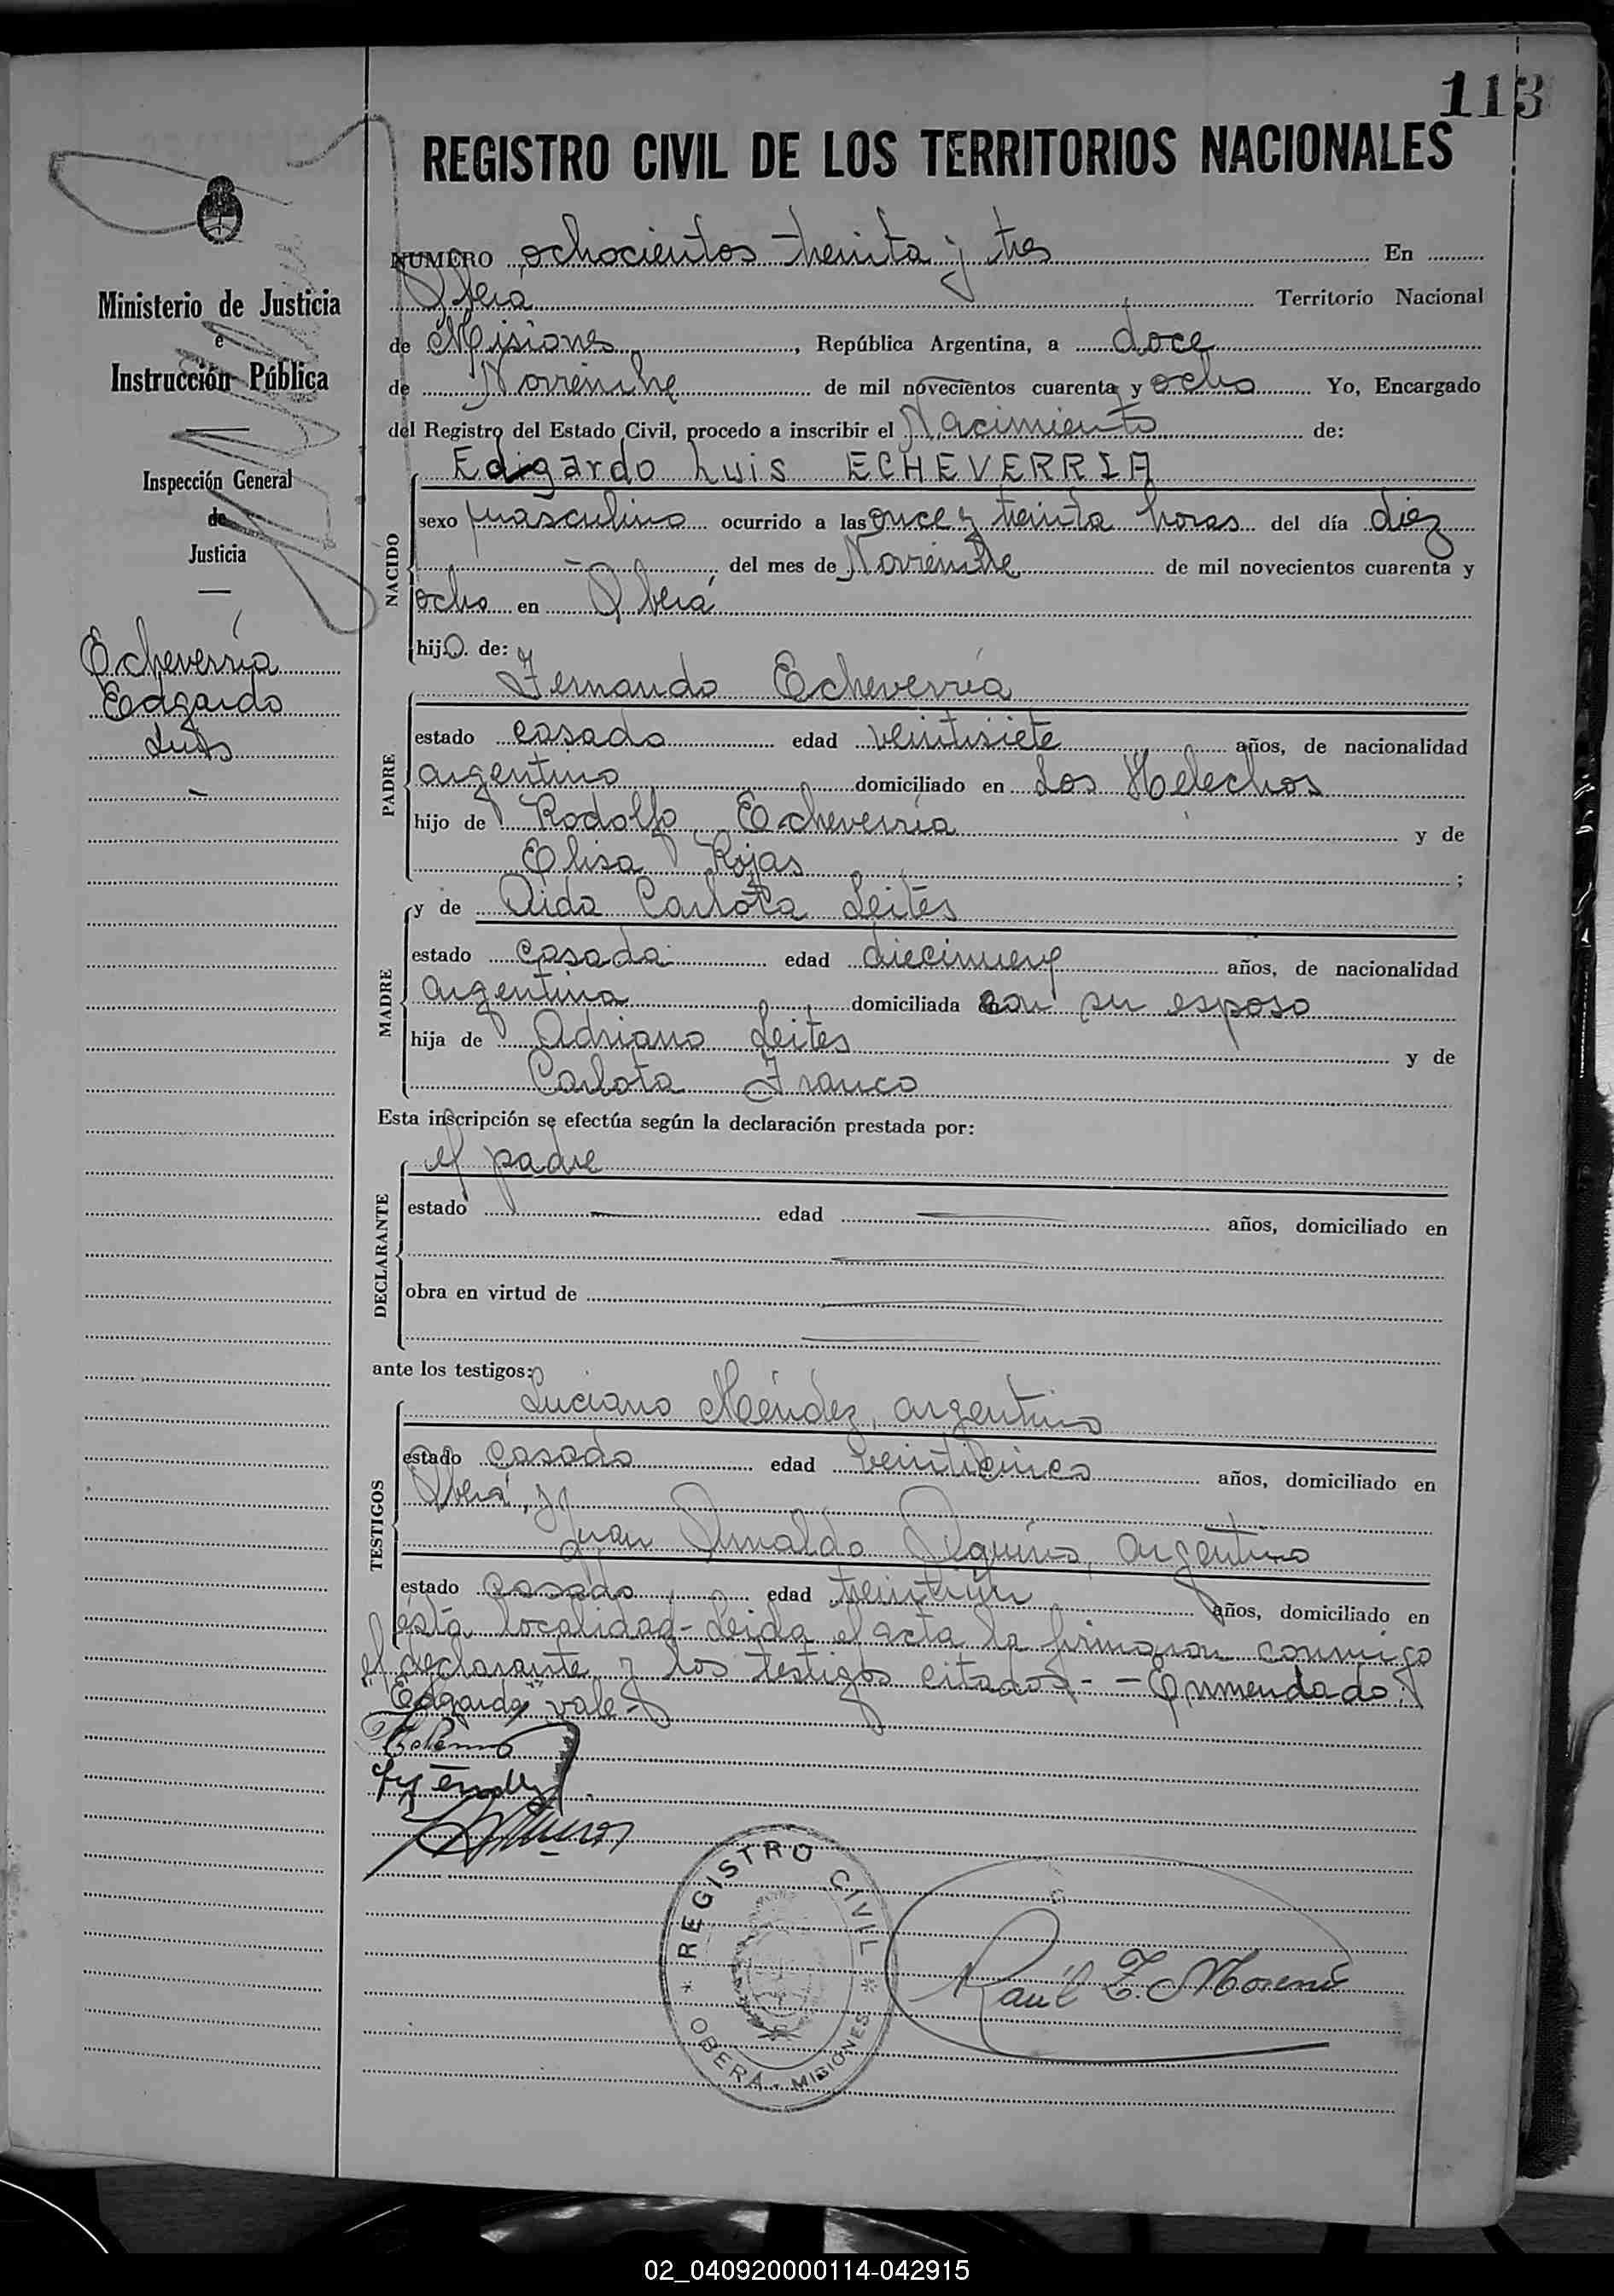 113
REGISTRO CIVIL DE LOS TERRITORIOS NACIONALES
Ministerio de Justicia
e
Instrucción Pública
Inspección General
de
Justicia
Echeverría
Edgardo
Luis
NUMERO ochocientos treinta y tres En
Oberá Territorio Nacional
de Misiones, República Argentina, a doce
de Noviembre de mil novecientos cuarenta y ocho Yo, Encargado
del Registro del Estado Civil, procedo a inscribir el Nacimiento de:
Edgardo Luis ECHEVERRIA
NACIDO
sexo masculino ocurrido a las once y treinta horas del día diez
- del mes de Noviembre de mil novecientos cuarenta y
ocho en Oberá
hijo de:
PADRE
Fernando Echeverría
estado casado edad veintisiete años, de nacionalidad
argentino domiciliado en Los Helechos
hijo de Rodolfo Echeverría y de
Elisa Rojas ;
MADRE
y de Aida Carlota Leites
estado casada edad diecinueve años, de nacionalidad
argentina domiciliada con su esposo
hija de Adriano Leites y de
Carlota Franco
Esta inscripción se efectúa según la declaración prestada por:
DECLARANTE
el padre
estado — edad — años, domiciliado en
—
obra en virtud de —
—
ante los testigos:
TESTIGOS
Luciano Méndez, argentino
estado casado edad veinticinco años, domiciliado en
Oberá, y
Juan Arnaldo Aquino, argentino
estado casado edad treintiún años, domiciliado en
ésta localidad- Leida el acta la firmaron conmigo
el declarante y los testigos citados.- - Enmendado:
"Edgardo" vale-
REGISTRO CIVIL
OBERA - MISIONES
Raúl F. Moreno
02_040920000114-042915